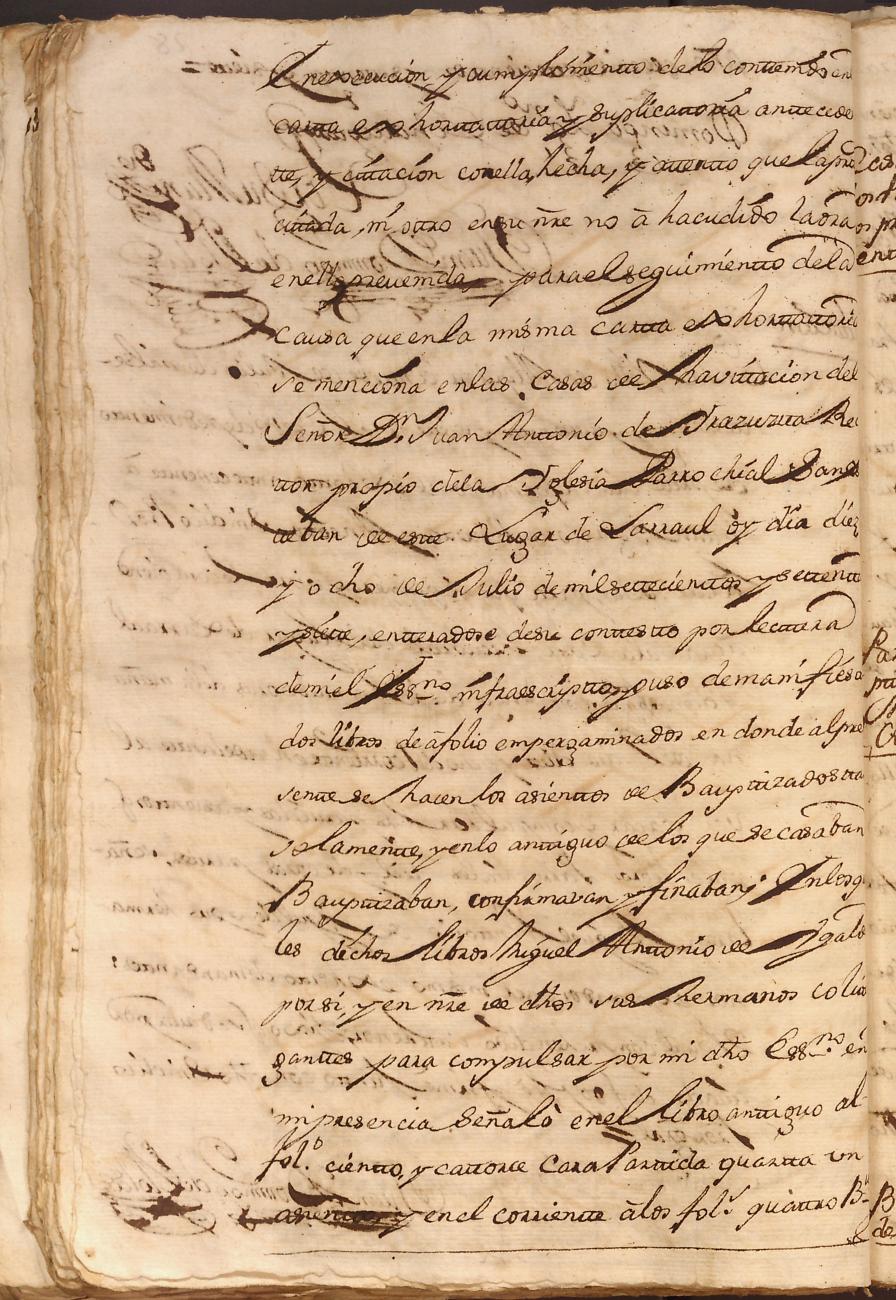 En execucion y cumplimiento de lo contenido en
carta exshortatoria y suplicatoria antecede
te, y citacion con ella hecha, y atento que la
citada, ni otro en su nre no à hacudido la ora
en ella prevenida, para el seguimiento de la
causa que en la misma carta exshortatoria
se menciona en las Casas de havitacion del
Señor Dn. Juan Antonio de Yrazuzta Re
ttor propio de la Yglesia Parrochial Sanes
teban de este Lugar de Larraul oy dia diez
y ocho de Julio de mil settecientos y settenta
y siete, enterados de su contesto por lectura
de mi el Essno infraescripto, puso de manifiesto
dos libros de à folio empergaminados en donde al pre
sente se hacen los asientos de Baptizados ta
solamente, y en lo antiguo de los que se casaban
Baptizaban, confirmavan y finaban; En los q
les dichos libros Miguel Antonio de Ygal
por si, y en nre de dhos sus hermanos coliti
gantes para compulsar por mi dho Essno en
mi presencia señalò en el libro antiguo al
folo. ciento, y catorce Cara Partida quarta un
y en el corriente à los fols. quatro B.ta
13